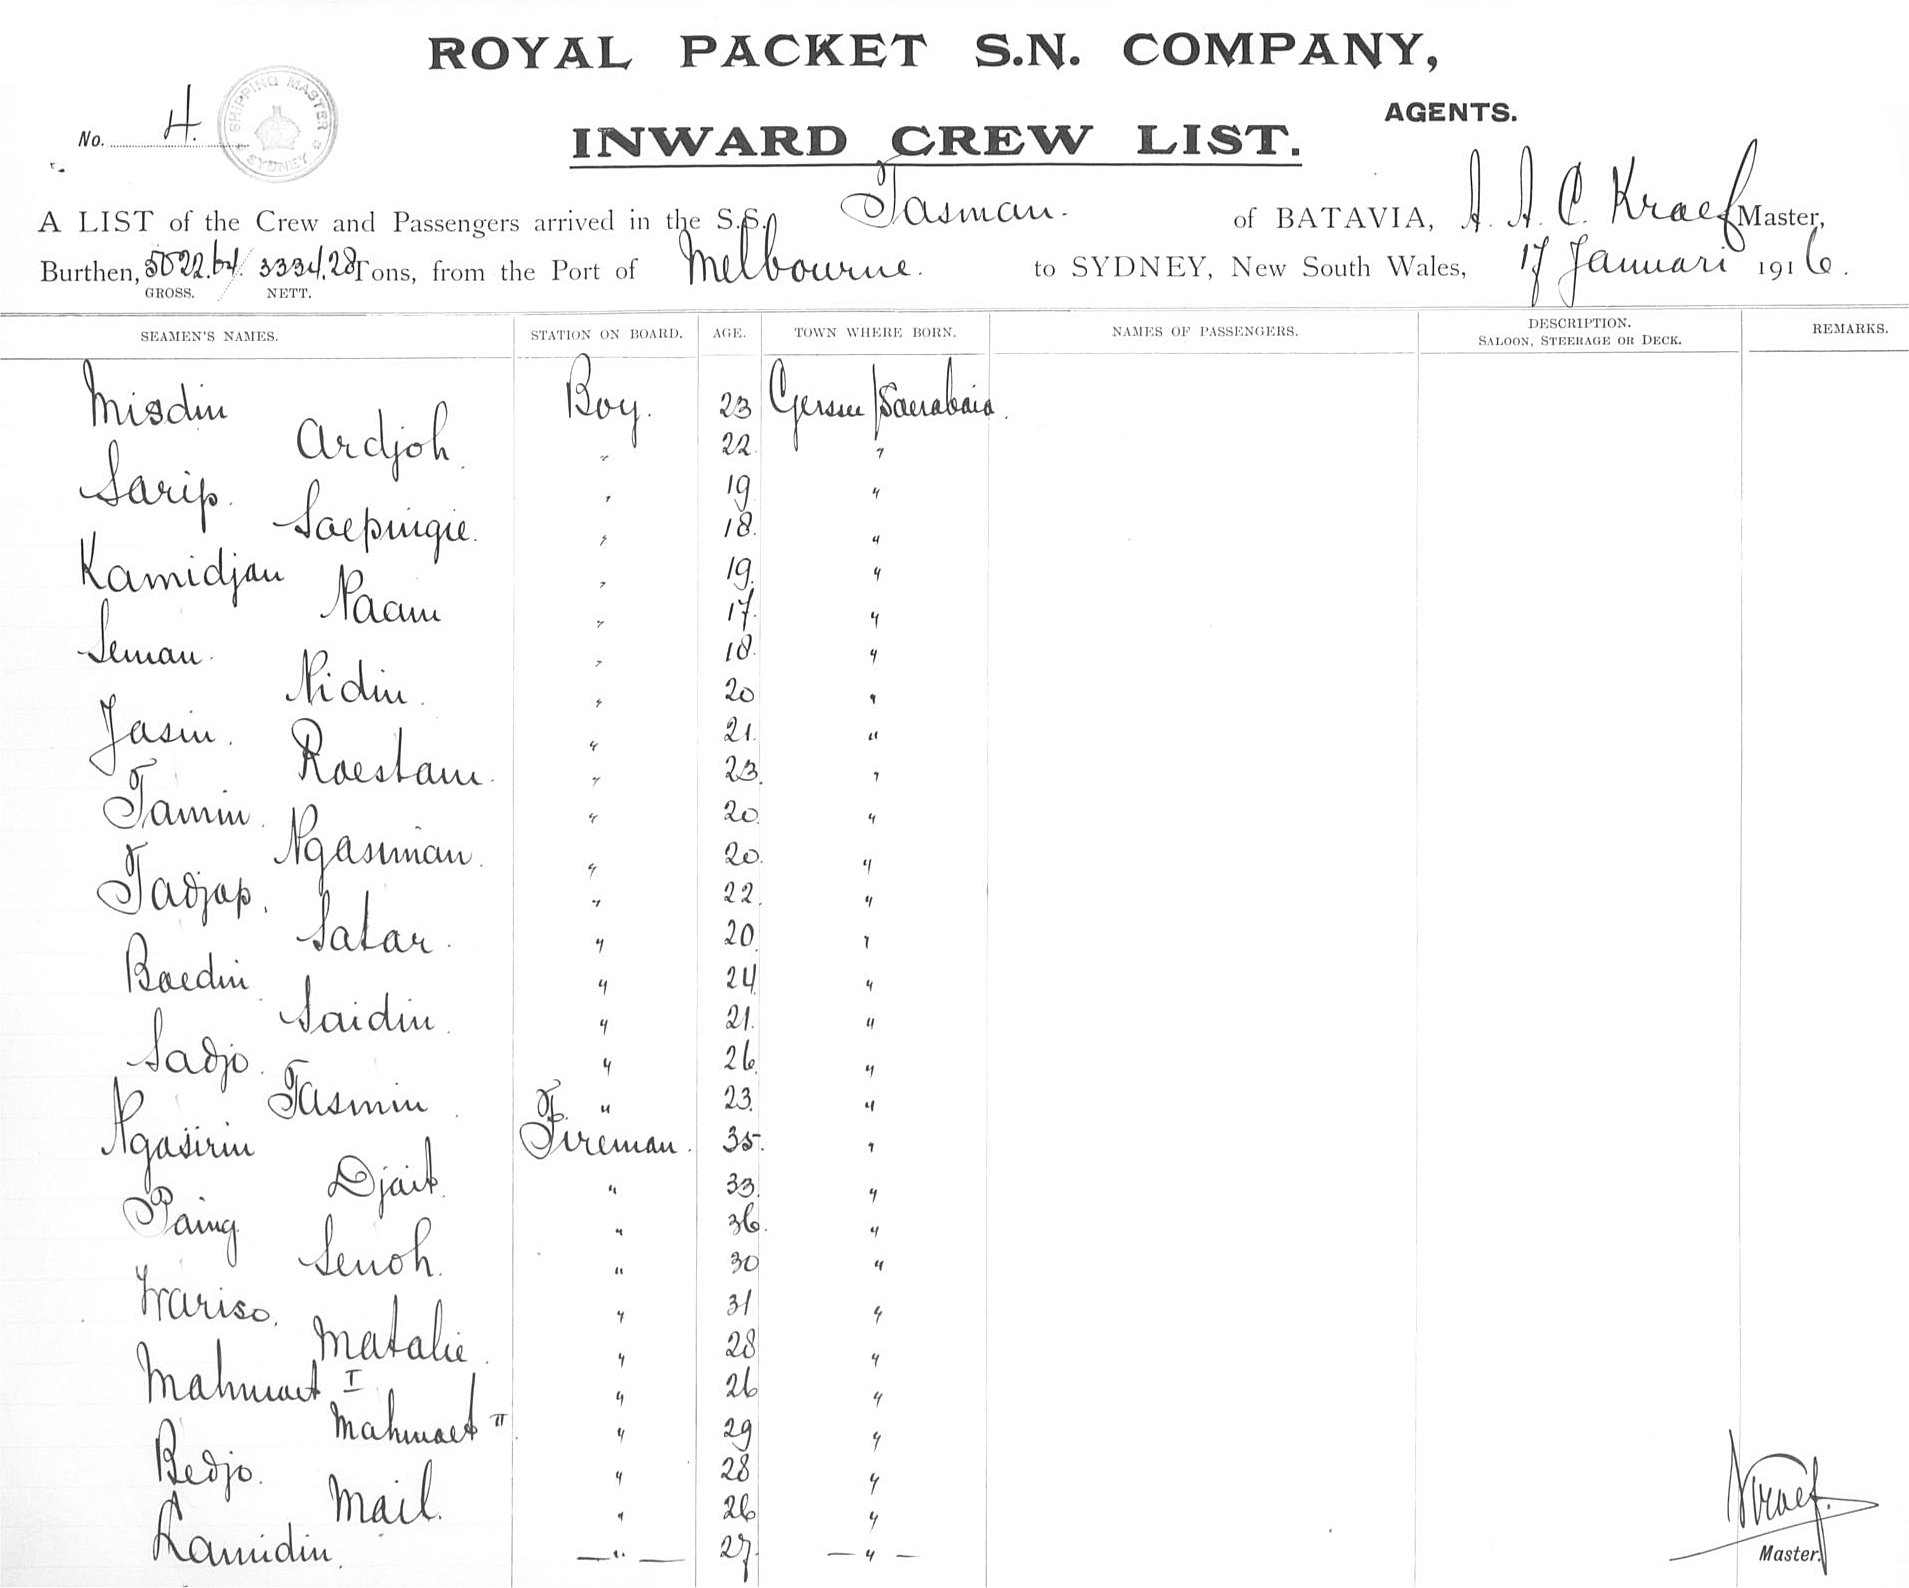 ROYAL PACKET S.N. COMPANY,
AGENTS.
No. 4.
SHIPPING MASTER SYDNEY
INWARD CREW LIST.
A LIST of the Crew and Passengers arrived in the S.S. Tasman. of BATAVIA, A. A. C. Kraef Master,
Burthen, 5022.64 / 3334.28 Tons, from the Port of Melbourne. to SYDNEY, New South Wales, 17 Januari 1916.
GROSS. NETT.
SEAMEN'S NAMES. STATION ON BOARD. AGE. TOWN WHERE BORN. NAMES OF PASSENGERS. DESCRIPTION. SALOON, STEERAGE OR DECK. REMARKS.
Misdin Boy. 23 Gersee / Soerabaia.
Ardjoh. " 22. "
Sarip. " 19 "
Soepingie. " 18. "
Kamidjan " 19. "
Naam " 17. "
Seman. " 18. "
Nidin. " 20 "
Jasin. " 21. "
Roestam. " 23. "
Tamin. " 20. "
Ngasiman. " 20. "
Tadjap. " 22. "
Satar. " 20. "
Boedin " 24. "
Saidin. " 21. "
Sadjo. " 26. "
Tasmin. " 23. "
Ngasirin Fireman. 35. "
Djait. " 33. "
Paing. " 36. "
Senoh. " 30 "
Wariso. " 31 "
Matalie. " 28 "
Mahmoet I " 26 "
Mahmoet II " 29 "
Bedjo. " 28 "
Mail. " 26 "
Lamidin. — " — 27. — " —
Kraef.
Master.